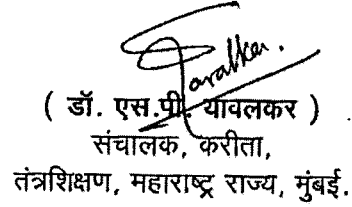 ( डॉ. एस.पी. यावलकर )
संचालक, करीता,
तंत्रशिक्षण, महाराष्ट्र राज्य, मुंबई.